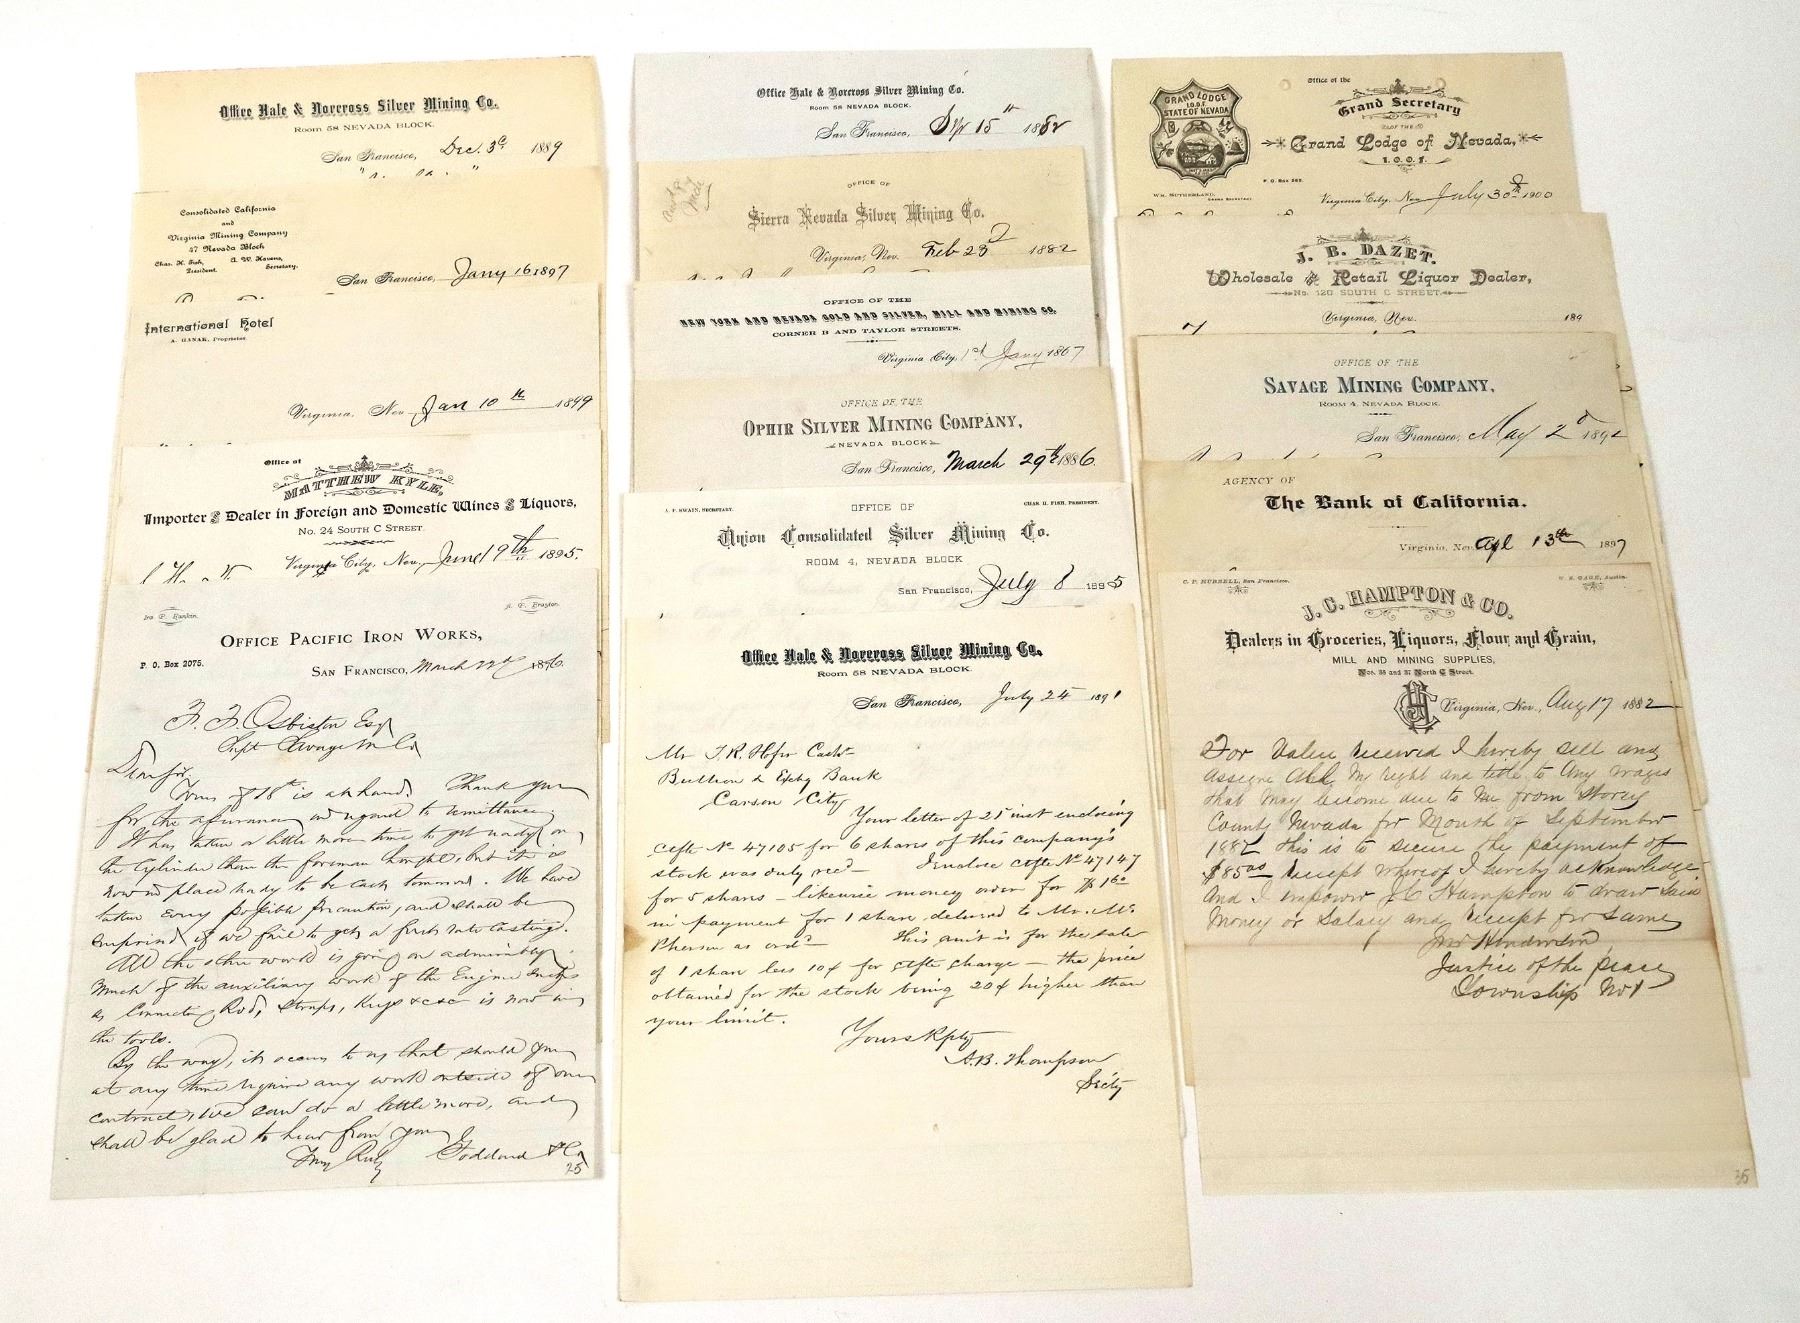 Office Hale & Norcross Silver Mining Co.
Room 58 NEVADA BLOCK.
San Francisco, Dec. 3d 1889
Consolidated California
and
Virginia Mining Company
47 Nevada Block
Chas. H. Fish, President. A. W. Havens, Secretary.
San Francisco, Jany 16 1897
International Hotel
A. HANAK, Proprietor.
Virginia, Nev. Jan 10th 1899
Office of
MATTHEW KYLE,
Importer & Dealer in Foreign and Domestic Wines & Liquors,
No. 24 SOUTH C STREET.
Virginia City, Nev., June 19th 1895.
Ira P. Rankin. A. P. Brayton.
OFFICE PACIFIC IRON WORKS,
P. O. BOX 2075.
SAN FRANCISCO, March 22d 1876.
F. F. Osbiston Esq
Supt Savage M Co
Dear Sir
Yours of 18th is at hand. Thank you
for the assurance in regard to remittance.
It has taken a little more time to get ready on
the Cylinder than the foreman thought, but it is
now in place ready to be cast tomorrow. We have
taken every possible precaution, and shall be
surprised if we fail to get a first rate casting.
All the other work is going on admirably.
Much of the auxiliary work of the Engine such
as Connecting Rod, Straps, Keys &c &c is now in
the tools.
By the way, it occurs to us that should you
at any time require any work outside of our
contract, we can do a little more, and
shall be glad to hear from you
Goddard & Co
25
Office Hale & Norcross Silver Mining Co.
Room 58 NEVADA BLOCK.
San Francisco, 15th 1882
OFFICE OF
Sierra Nevada Silver Mining Co.
Virginia, Nev. Feb 23d 1882
OFFICE OF THE
NEW YORK AND NEVADA GOLD AND SILVER, MILL AND MINING CO.
CORNER B AND TAYLOR STREETS.
Virginia City, 1st Jany 1867
OFFICE OF THE
OPHIR SILVER MINING COMPANY,
NEVADA BLOCK
San Francisco, March 29th 1886.
A. F. SWAIN, SECRETARY. CHAS. H. FISH, PRESIDENT.
OFFICE OF
Union Consolidated Silver Mining Co.
ROOM 4, NEVADA BLOCK
San Francisco, July 8 1895
Office Hale & Norcross Silver Mining Co.
Room 58 NEVADA BLOCK.
San Francisco, July 24 1891
Mr T. R. Hofer Cashr
Bullion & Exchg Bank
Carson City
Your letter of 21 inst enclosing
Ctfte No 47105 for 6 shares of this company's
stock was duly recd — I enclose ctfte No 47147
for 5 shares — likewise money order for
in payment for 1 share delivered to Mr. Mc
Pherson as ordd — This amt is for the sale
of 1 share less 10¢ for ctfte charge — the price
obtained for the stock being 20¢ higher than
your limit.
Yours Rpfly
A. B. Thompson
Secty
GRAND LODGE
I.O.O.F.
STATE OF NEVADA
Office of the
Grand Secretary
OF THE
Grand Lodge of Nevada,
I.O.O.F.
P. O. Box 265.
WM. SUTHERLAND, GRAND SECRETARY.
Virginia City, Nev July 30th 1900
J. B. DAZET.
Wholesale & Retail Liquor Dealer,
No. 120 SOUTH C STREET.
Virginia, Nev. 189
OFFICE OF THE
SAVAGE MINING COMPANY,
ROOM 4, NEVADA BLOCK.
San Francisco, May 2d 1892
AGENCY OF
The Bank of California.
Virginia, Nev. Apl 13th 1897
C. P. HUBBELL, San Francisco. W. S. GAGE, Austin.
J. C. HAMPTON & CO.
Dealers in Groceries, Liquors, Flour and Grain,
MILL AND MINING SUPPLIES,
Nos. 35 and 37 North C Street.
Virginia, Nev., Aug 17 1882
For Value Received I hereby sell and
assigne All My right and title to Any wages
that May become due to Me from Storey
County Nevada for Month of September
1882 this is to secure the payment of
$85 00 Receipt whereof I hereby acknowledge
And I empower J C Hampton to draw said
Money or Salary and Receipt for Same
Jno Henderson
Justice of the Peace
Township No 1